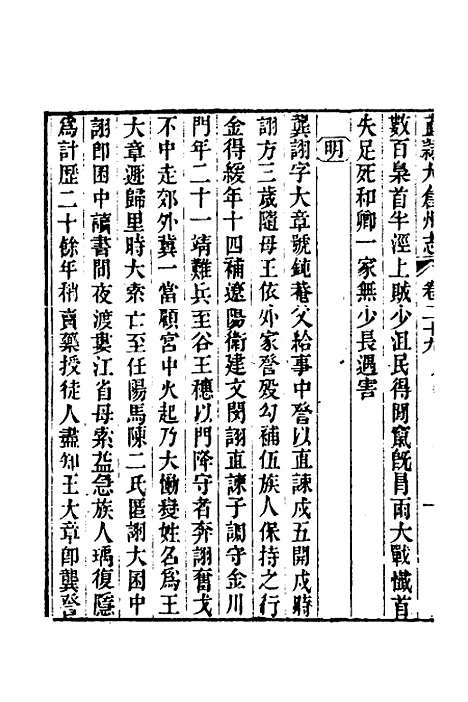 直隸太倉州志 卷二十九
數百梟首半涇上賊少沮民得間竄旣昌雨大戰懺首
失足死和卿一家無少長遇害
明
龔詡字大章號鈍菴父給事中詧以直諫戍五開戍時
詡方三歲隨母王依外家詧歿勾補伍族人保持之行
金得緩年十四補遼陽衛建文閔詡直諫子調守金川
門年二十一靖難兵至谷王橞以門降守者奔詡奮戈
不中走郊外冀一當顧宮中火起乃大慟變姓名爲王
大章遯歸里時大索亡至任陽馬陳二氏匿詡大囷中
詡卽囷中讀書間夜渡婁江省母索益急族人瑀復隱
爲計歷二十餘年稍賣藥授徒人盡知王大章卽龔詧